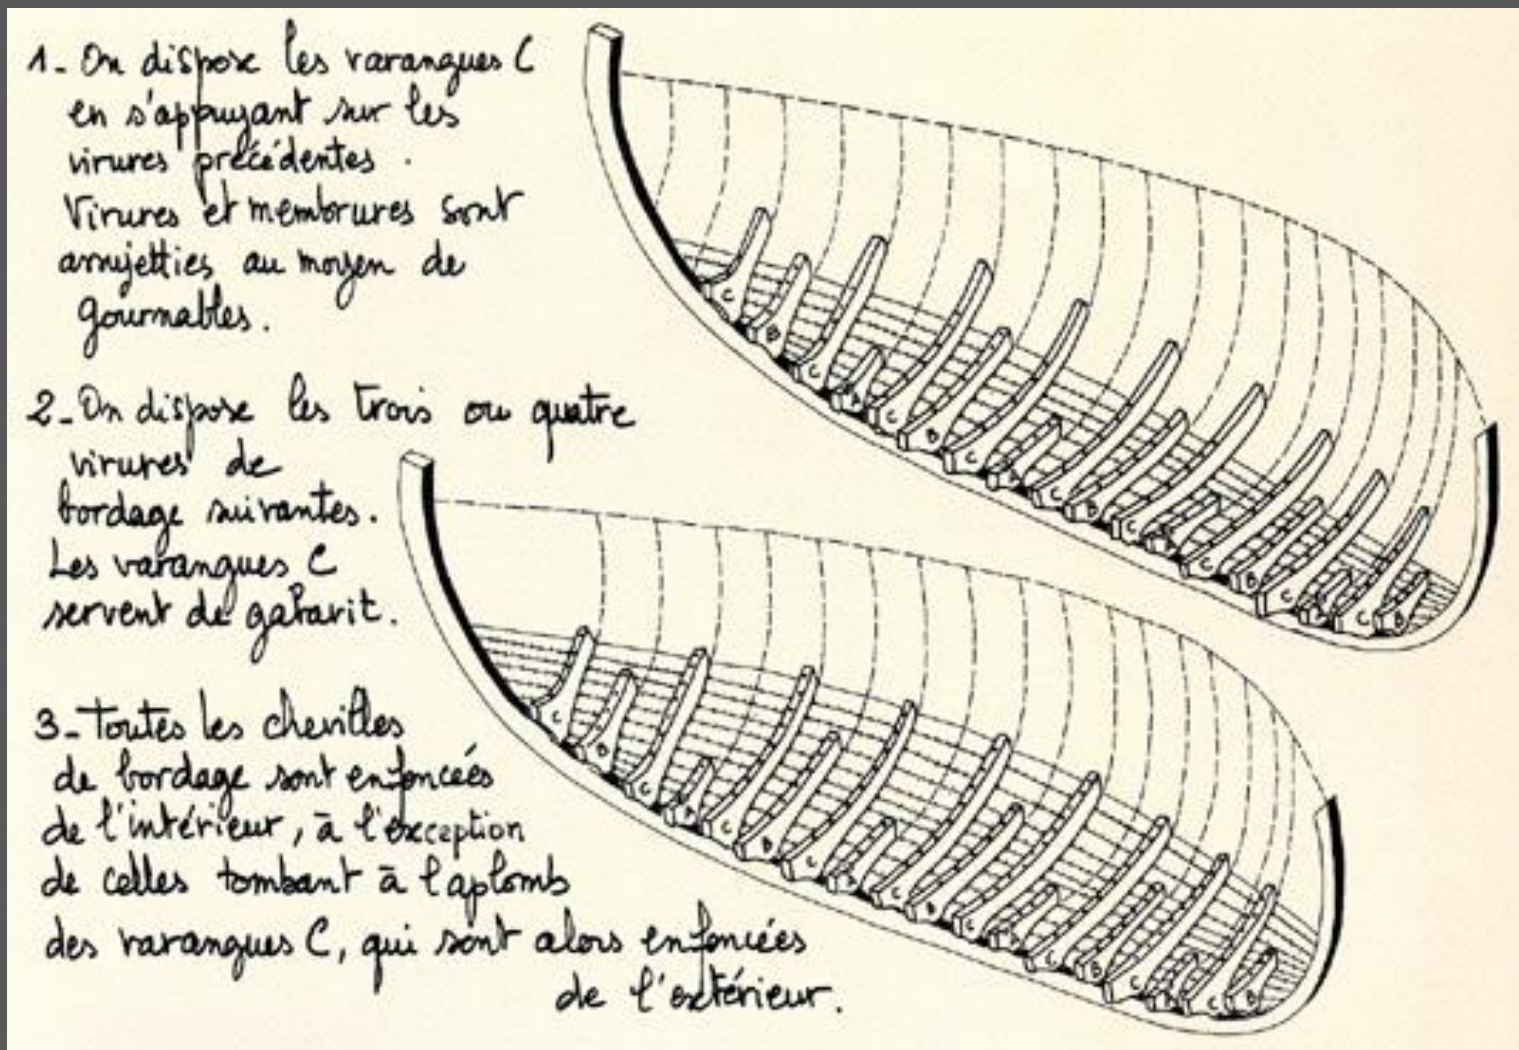 1- On dispose les varangues C
en s'appuyant sur les
virures précédentes.
Virures et membrures sont
assujetties au moyen de
gournables.
2- On dispose les trois ou quatre
virures de
bordage suivantes.
Les varangues C
servent de gabarit.
3- Toutes les chevilles
de bordage sont enfoncées
de l'intérieur, à l'exception
de celles tombant à l'aplomb
des varangues C, qui sont alors enfoncées
de l'extérieur.